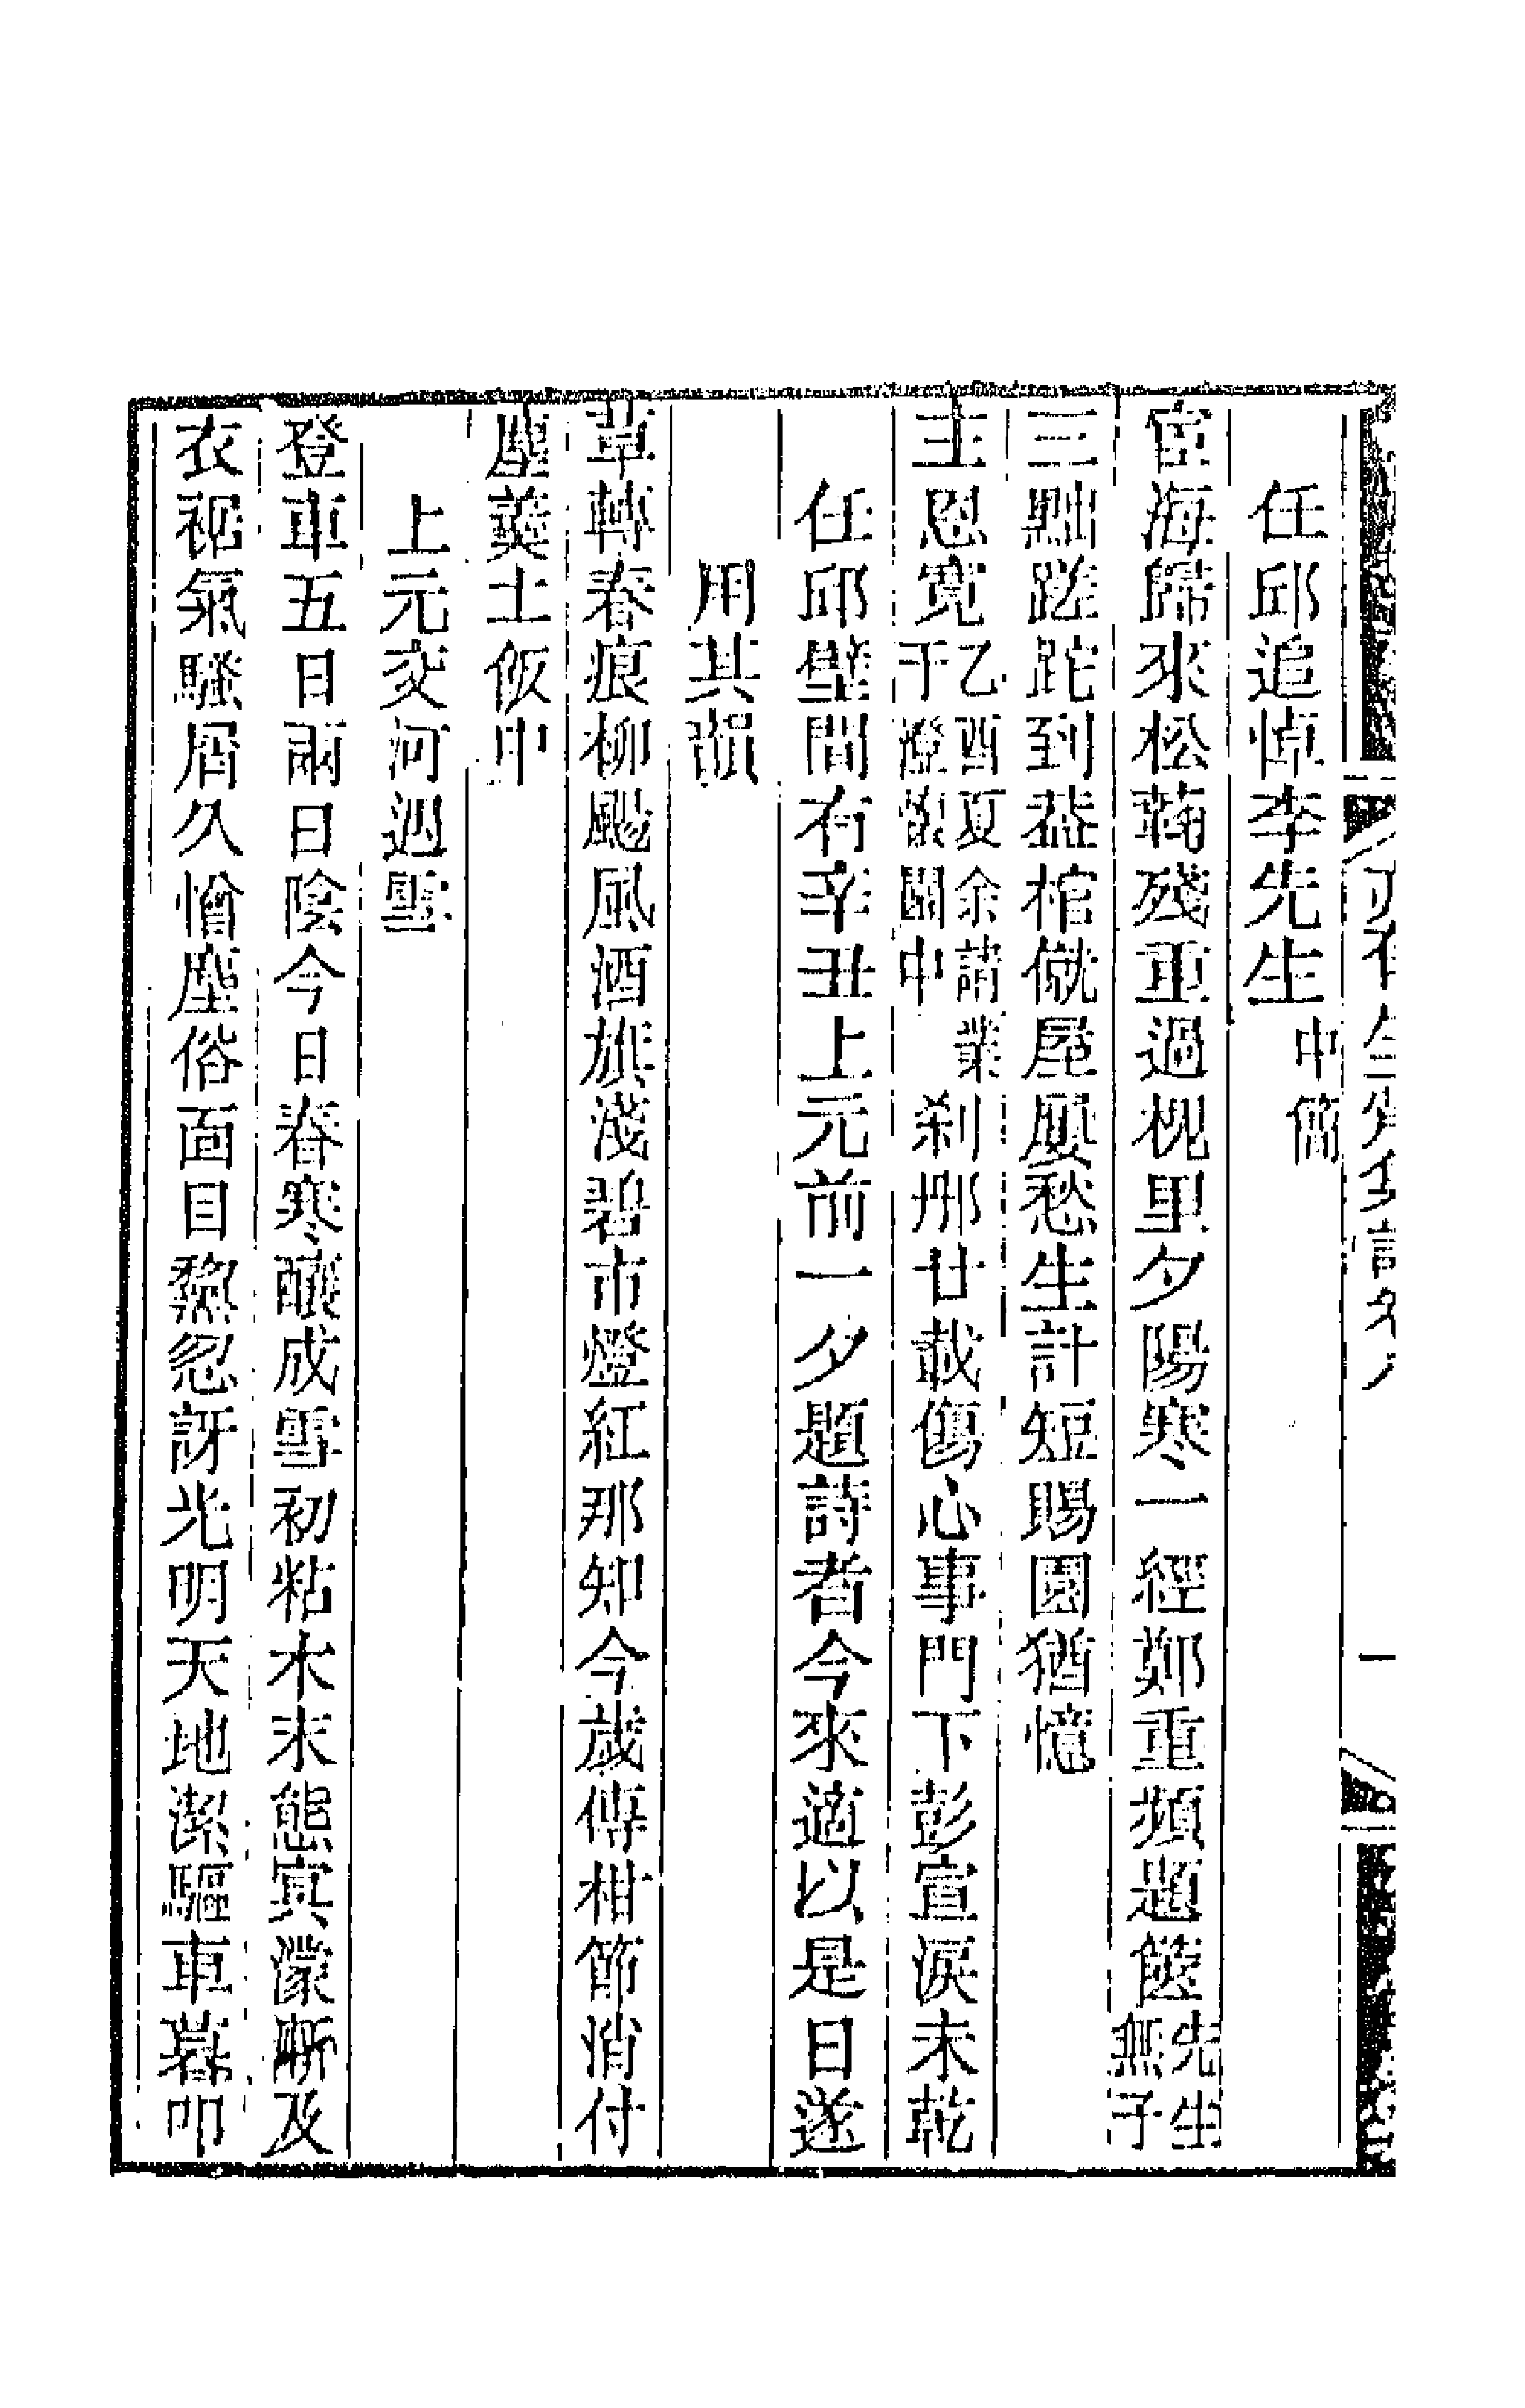 任邱追悼李先生中簡
宦海歸來松菊殘重過槐里夕陽寒一經鄭重頻題篋先生無子
三黜蹉跎到葢棺僦屋屢愁生計短賜園猶憶
主恩寛乙酉夏余請業于澄懷園中刹那廿載傷心事門下彭宣淚未乾
任邱壁間有辛丑上元前一夕題詩者今來適以是日遂
用其韻
草轉春痕柳颺風酒旗淺碧市燈紅那知今歲傳柑節悄付
塵羹土飯中
上元交河遇雪
登車五日兩日陰今日春寒釀成雪初粘木末態寘濛漸及
衣裾氣騷屑久憎塵俗面目黧忽訝光明天地潔驅車暮叩
一